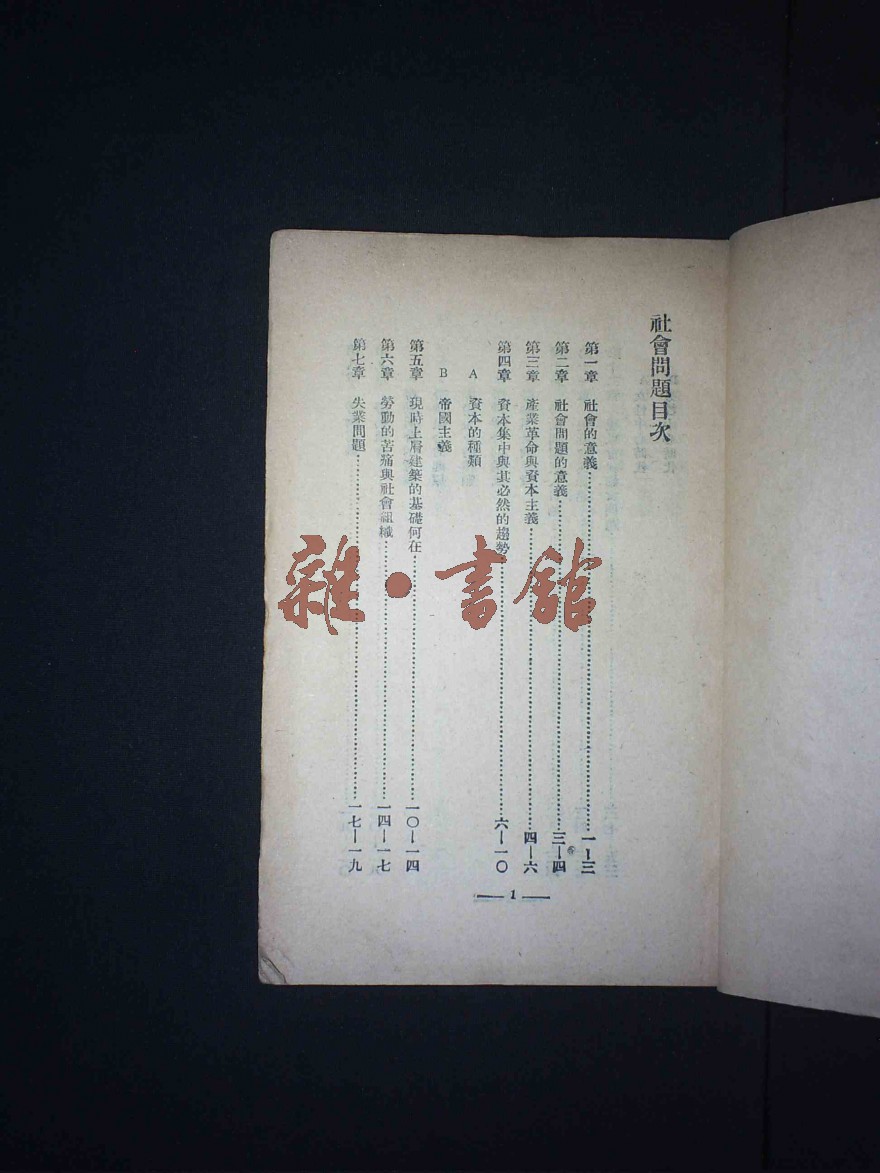 社會問題目次
第一章 社會的意義……一—三
第二章 社會問題的意義……三—四
第三章 產業革命與資本主義……四—六
第四章 資本集中與其必然的趨勢……六—一〇
A 資本的種類
B 帝國主義
第五章 現時上層建築的基礎何在……一〇—一四
第六章 勞動的苦痛與社會組織……一四—一七
第七章 失業問題……一七—一九
— 1 —
雜·書館